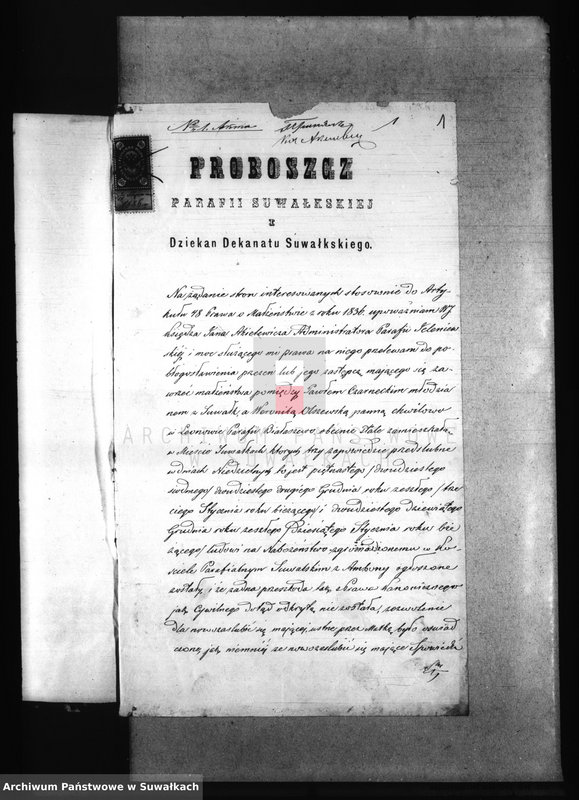 No 1. Akma
1
1
PROBOSZCZ
PARAFII SUWAŁKSKIEJ
I
Dziekan Dekanatu Suwałkskiego.
Na żądanie stron interesowanych stosownie do Arty-
kułu 48 Prawa o Małżeństwie z roku 1836. upoważniam WJ
Księdza Jana Administratora Parafii
i moc służącego mi prawa na niego przelewam do po-
błogosławienia przezeń lub jego zastępcę mającego się za-
wrzeć małżeństwa pomiędzy Pawłem Czarneckim młodzia-
nem z Suwałk, a Weroniką Olszewską panną chwilowo
w Leonowie Parafii obecnie stale zamieszkałą
w Mieście Suwałkach których trzy zapowiedzie przedślubne
w dniach Niedzielnych to jest piętnastego / dwudziestego
siódmego / dwudziestego drugiego Grudnia roku zeszłego / trze-
ciego Stycznia roku bieżącego / i dwudziestego dziewiątego
Grudnia roku zeszłego / Dziesiątego Stycznia roku bie-
żącego / ludowi na Nabożeństwo zgromadzonemu w Ko-
ściele Parafialnym Suwałskim z Ambony ogłoszone
zostały, i że żadna przeszkoda tak Prawa Kanonicznego
jak Cywilnego dotąd odkrytą nie została, zezwolenie
dla nowozaślubić się mającej, ustne przez Matkę było oświad-
czone, jak niemniej że nowozaślubić się mające
ARCHIWUM PAŃSTWOWE
W SUWAŁKACH
Archiwum Państwowe w Suwałkach